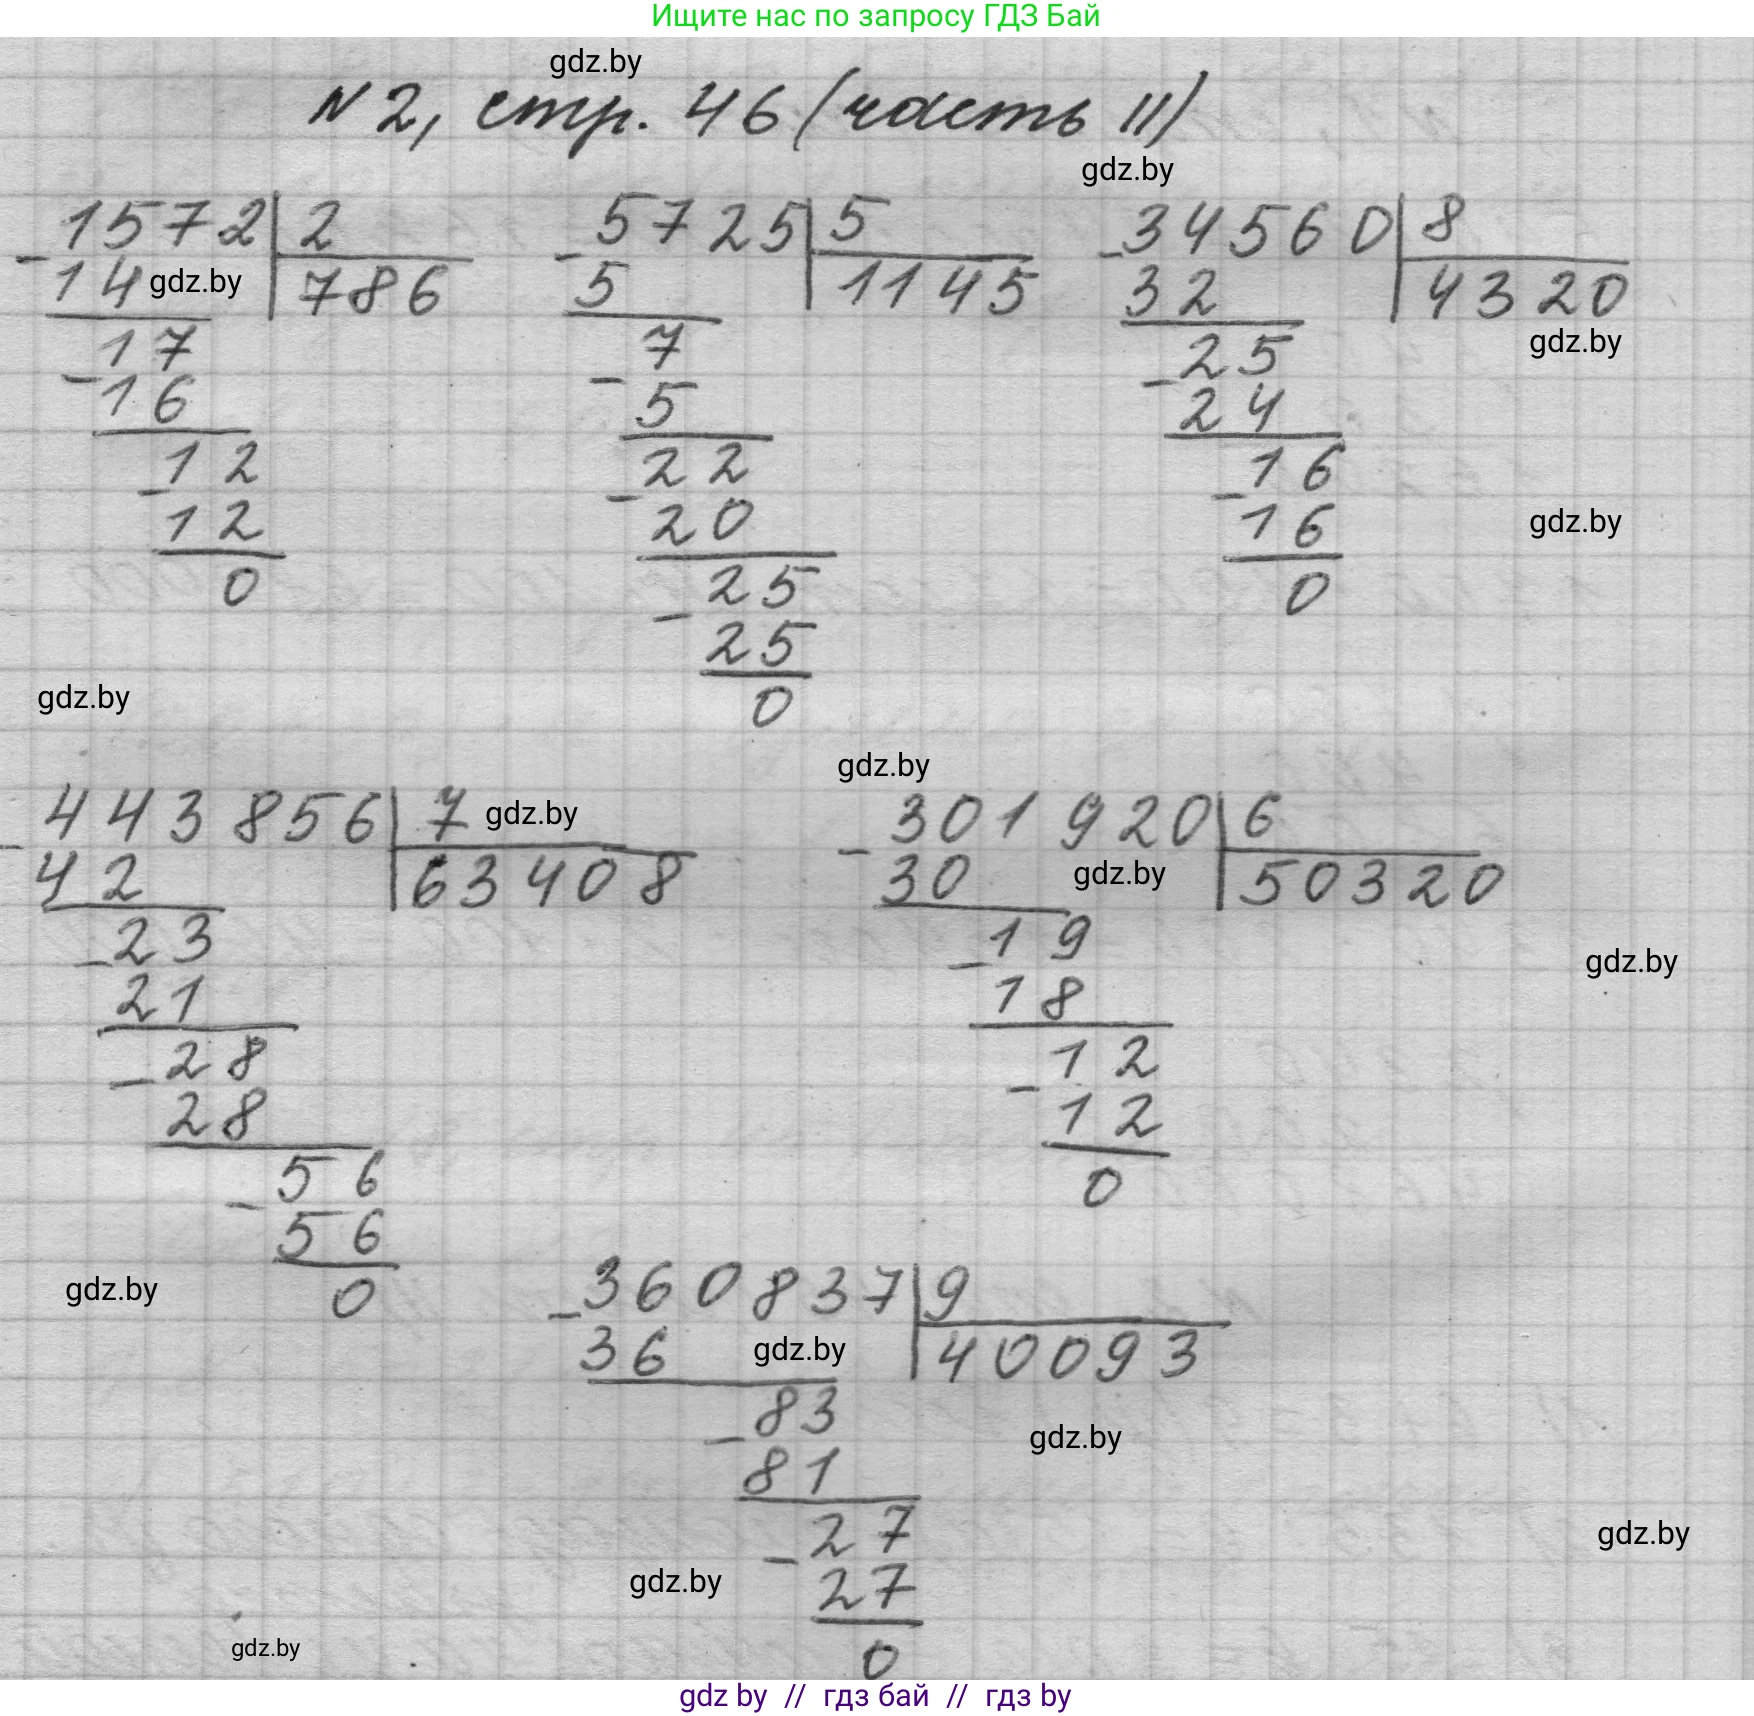 Ищите нас по запросу ГДЗ Бай
gdz.by
N2, стр. 46 (часть II)
gdz.by
-1572|2
14 gdz.by 786
-17
16
-12
12
0
-5725|5
5 1145
-7
5
-22
20
-25
25
0
-34560|8
32 4320
gdz.by
-25
24
-16
16
gdz.by
0
gdz.by
gdz.by
-443856|7 gdz.by
42 63408
-23
21
-28
28
-56
56
0
-301920|6
30 gdz.by 50320
-19
18
gdz.by
-12
12
0
gdz.by
-360837|9
36 gdz.by 40093
-83
gdz.by
81
-27
gdz.by
27
gdz.by
0
gdz.by
gdz by // гдз бай // гдз by